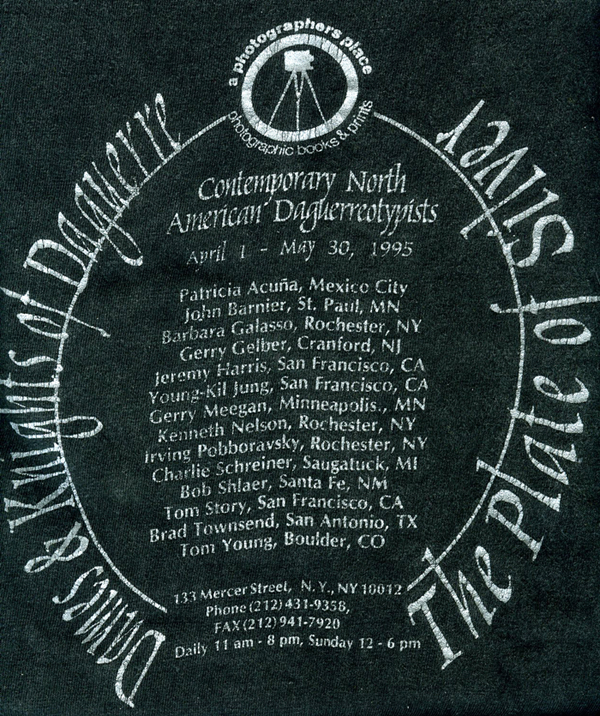 a photographers place
photographic books & prints
Dames & Knights of Daguerre
The Plate of Silver
Contemporary North
American Daguerreotypists
April 1 - May 30, 1995
Patricia Acuña, Mexico City
John Barnier, St. Paul, MN
Barbara Galasso, Rochester, NY
Gerry Gelber, Cranford, NJ
Jeremy Harris, San Francisco, CA
Young-Kil Jung, San Francisco, CA
Gerry Meegan, Minneapolis., MN
Kenneth Nelson, Rochester, NY
Irving Pobboravsky, Rochester, NY
Charlie Schreiner, Saugatuck, MI
Bob Shlaer, Santa Fe, NM
Tom Story, San Francisco, CA
Brad Townsend, San Antonio, TX
Tom Young, Boulder, CO
133 Mercer Street, N.Y., NY 10012
Phone (212) 431-9358,
FAX (212) 941-7920
Daily 11 am - 8 pm, Sunday 12 - 6 pm